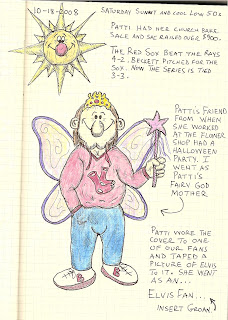 10-18-2008
SATURDAY SUNNY AND COOL LOW 50s
PATTI HAD HER CHURCH BAKE
SALE AND SHE RAISED OVER $900.
THE RED SOX BEAT THE RAYS
4-2. BECKETT PITCHED FOR THE
SOX. NOW THE SERIES IS TIED
3-3.
PATTI'S FRIEND
FROM WHEN
SHE WORKED
AT THE FLOWER
SHOP HAD A
HALLOWEEN
PARTY. I
WENT AS
PATTI'S
FAIRY GOD
MOTHER
PATTI WORE THE
COVER TO ONE
OF OUR FANS
AND TAPED A
PICTURE OF ELVIS
TO IT. SHE WENT
AS AN...
ELVIS FAN...
INSERT GROAN
B
B